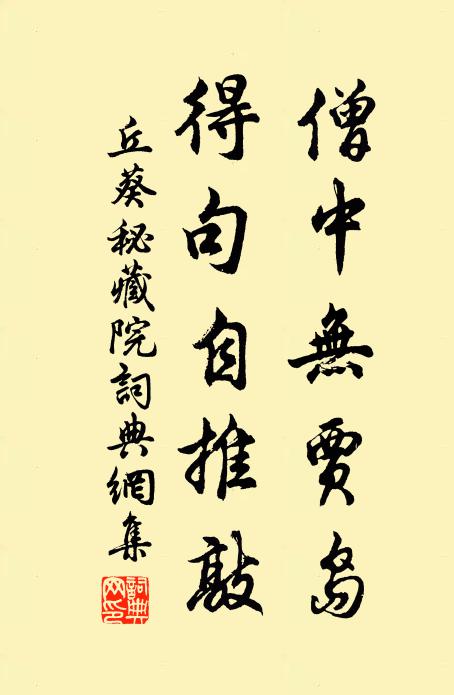 僧中無賈島
得句自推敲
丘葵秘藏院詞典網集
詞典網印